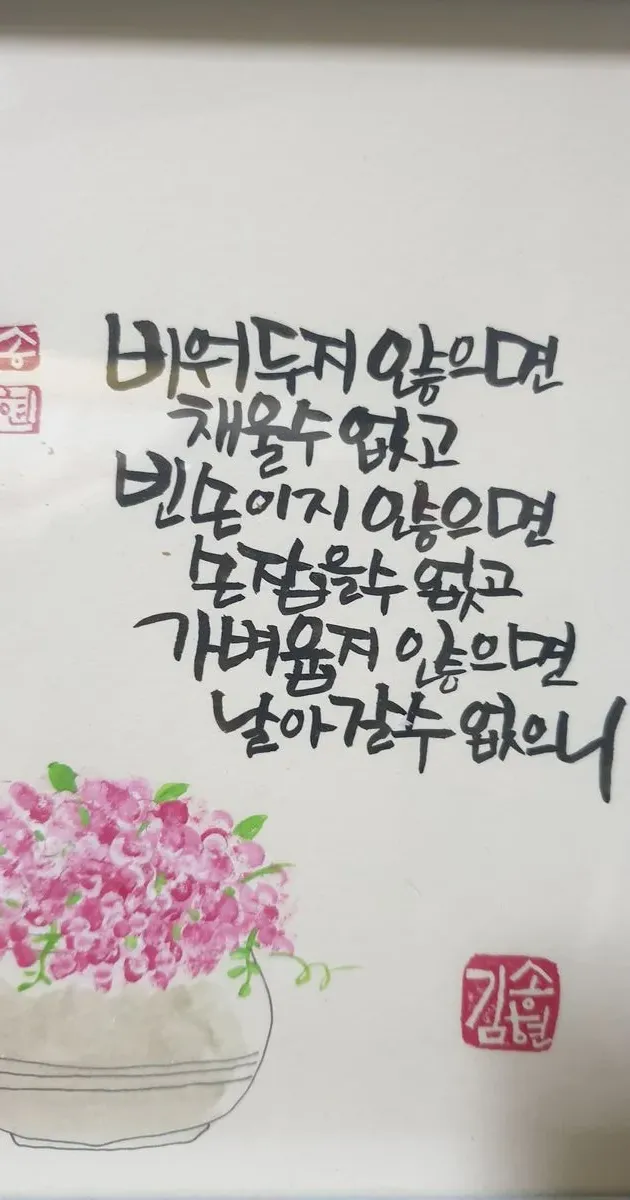 송
현
비워두지 않으면
채울수 없고
빈손이지 않으면
손잡을수 없고
가벼웁지 않으면
날아갈수 없으니
김송현